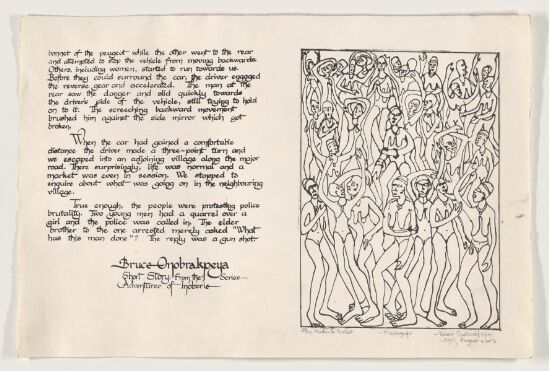 bonnet of the peugeot while the other went to the rear
and attempted to stop the vehicle from moving backwards.
Others, including women, started to run towards us.
Before they could surround the car, the driver engaged
the reverse gear and accelerated. The man at the
rear saw the danger and slid quickly towards
the drivers side of the vehicle, still trying to hold
on to it. The screeching backward movement
brushed him against the side mirror which got
broken.
When the car had gained a comfortable
distance the driver made a three-point turn and
we escaped into an adjoining village along the major
road. There surprisingly, life was normal and a
market was even in session. We stopped to
enquire about what was going on in the neighbouring
village.
True enough, the people were protesting police
brutality. Two young men had a quarrel over a
girl and the police was called in. The elder
brother to the one arrested merely asked "What
has this man done"? The reply was a gun shot.
Bruce Onobrakpeya
Short Story from the Series
Adventures of Inoberie
Nude Protest
Bruce Onobrakpeya
August 2002